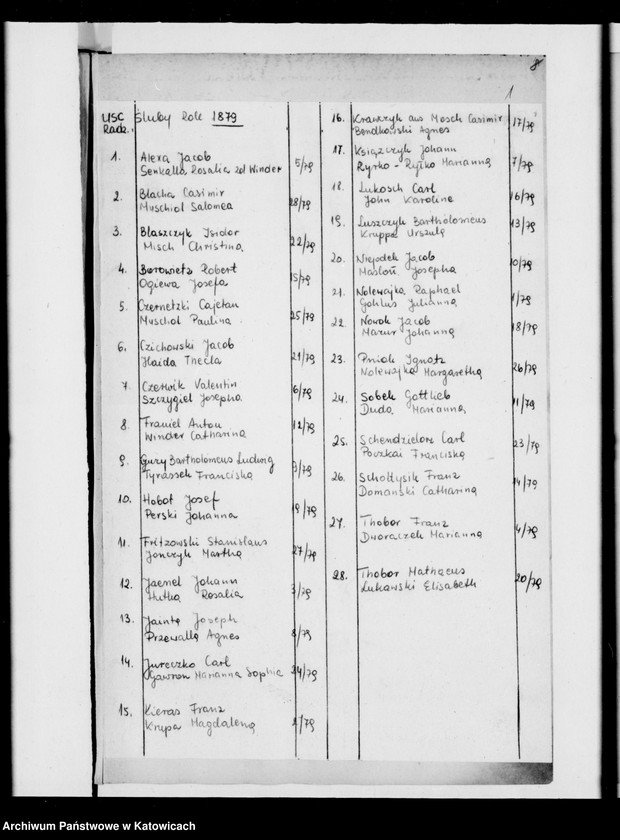 8
1
USC Radz.
Śluby Rok 1879
1. Alexa Jacob
Senkalla Rosalia zd Winder 5/79
2. Blacha Casimir
Muschiol Salomea 28/79
3. Blaszczyk Isidor
Misch Christina 22/79
4. Borowietz Robert
Ogiewa Josefa 15/79
5. Czernetzki Cajetan
Muschol Paulina 25/79
6. Czichowski Jacob
Haida Thecla 21/79
7. Czerwik Valentin
Szczygiel Josepha 6/79
8. Franiel Anton
Winder Catharina 12/79
9. Gury Bartholomeus Ludwig
Tyrassek Franciska 9/79
10. Hobot Josef
Perski Johanna 19/79
11. Fritzowski Stanislaus
Jonczyk Martha 27/79
12. Jaenel Johann
Hutka Rosalia 3/79
13. Jainta Joseph
Przewalla Agnes 8/79
14. Jureczko Carl
Gawron Marianna Sophie 24/79
15. Kieras Franz
Krupa Magdalena /79
16. Krawczyk aus Mosch Casimir
Bendkowski Agnes 17/79
17. Książczyk Johann
Ryrko - Ryłko Marianna 7/79
18. Lukosch Carl
John Karoline 16/79
19. Luszczyk Bartholomeus
Kruppa Urszula 13/79
20. Niejodek Jacob
Masloń Josepha 10/79
21. Nolewajka Raphael
Gohlus Julianna 1/79
22. Nowok Jacob
Mazur Johanna 18/79
23. Pniok Ignatz
Nolewajka Margaretha 26/79
24. Sobek Gottlieb
Duda Marianna 11/79
25. Schendzielorz Carl
Poczkai Franciska 23/79
26. Scholtysik Franz
Domanski Catharina 14/79
27. Thobor Franz
Dworaczek Marianna 4/79
28. Thobor Mathaeus
Lukawski Elisabeth 20/79
Archiwum Państwowe w Katowicach